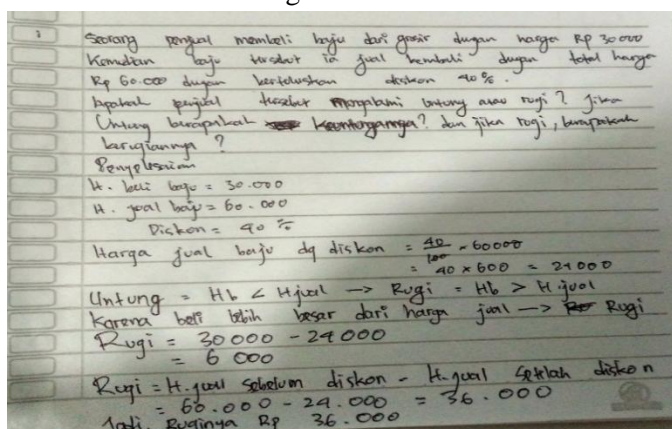 Seorang penjual membeli baju dari grosir dengan harga Rp 30000
Kemudian baju tersebut ia jual kembali dengan total harga
Rp 60.000 dengan bertuliskan diskon 40 %.
Apakah penjual tersebut mengalami untung atau rugi ? Jika
Untung berapakah keuntungannya? dan jika rugi, berapakah
kerugiannya ?
Penyelesaian
H. beli baju = 30.000
H. jual baju = 60.000
Diskon = 40 %
Harga jual baju dg diskon = 40/100 × 60000
= 40 × 600 = 24000
Untung = Hb < Hjual → Rugi = Hb > Hjual
Karena beli lebih besar dari harga jual → Rugi
Rugi = 30000 - 24000
= 6 000
Rugi = H. jual sebelum diskon - H. jual setelah diskon
= 60.000 - 24.000 = 36.000
Jadi, Ruginya Rp 36.000